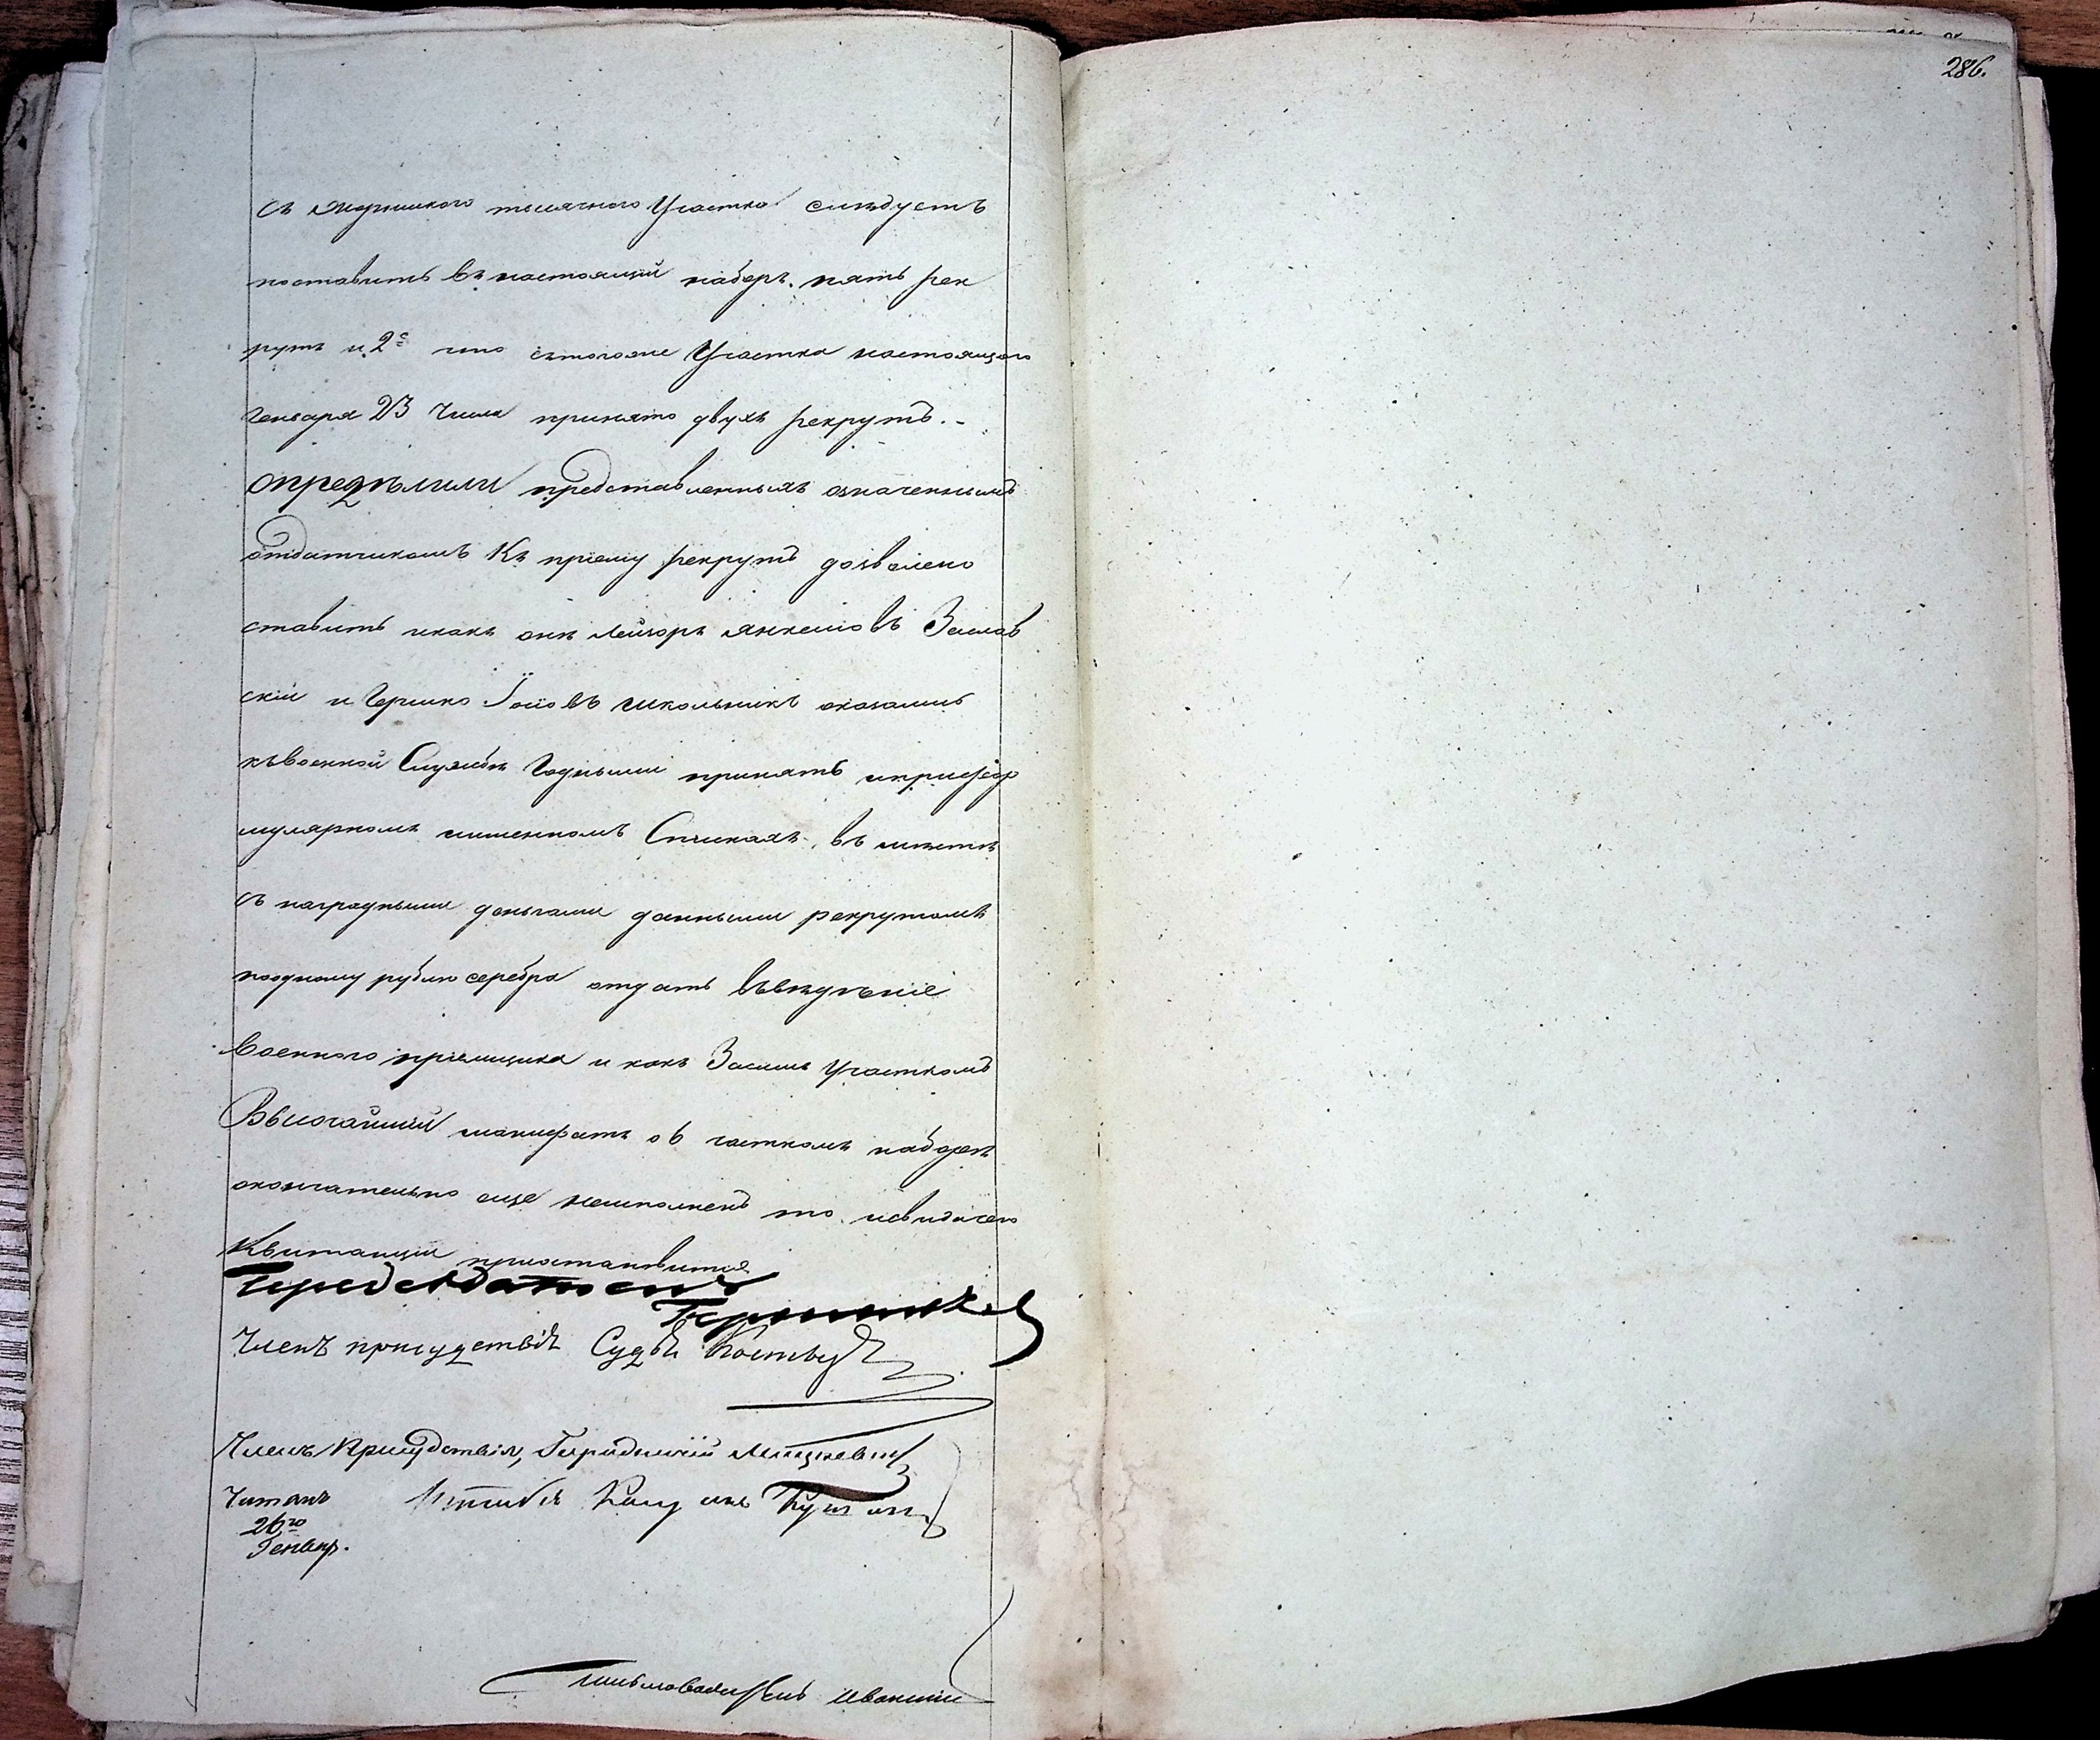 286.
съ тысячнаго Участка слѣдуетъ
поставить въ настоящій наборъ. пять рек
рутъ и 2е что стогоже Участка настоящаго
Генваря 23 Числа принято двухъ рекрутъ.-
опредѣлили представленныхъ означеннымъ
отдатчикомъ Къ пріему рекрутъ дозволено
ставить икакъ они Лейзоръ Янкеліовъ Заслав
скій и Гершко Іосіовъ школьникъ оказались
къвоенной Службѣ Годными принять ипри фор
мулярномъ имменномъ Спискахъ, въ мѣстѣ
съ наградными деньгами данными рекрутамъ
поодному рублю серебра отдать въвѣдѣніе
Военнаго пріемщика и какъ Засимъ Участкомъ
Высочайшій манифестъ о частномъ наборѣ
окончательно еще неисполненъ то
Квитанціи пріостановится
Председатель
Членъ присудствія Судья
Членъ Присудствія, Городничій
Читалъ
26го
Генвар.
Письмоводитель